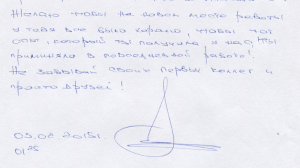 Желаю чтобы на новом месте работы
у тебя все было хорошо, чтобы тот
опыт, который ты получила у нас, ты
применяла в повседневной работе!
Не забывай своих первых коллег и
просто друзей!
03.08 2015г.
01 25